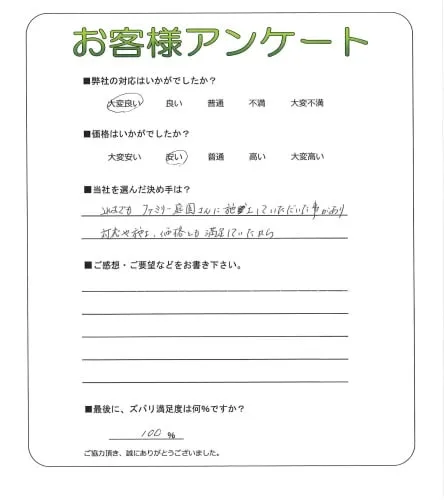 お客様アンケート
■弊社の対応はいかがでしたか？
大変良い 良い 普通 不満 大変不満
■価格はいかがでしたか？
大変安い 安い 普通 高い 大変高い
■当社を選んだ決め手は？
これまでも ファミリー庭園さんに施工していただいた事があり
対応や施工、価格にも満足していたから
■ご感想・ご要望などをお書き下さい。
■最後に、ズバリ満足度は何％ですか？
100 %
ご協力頂き、誠にありがとうございました。